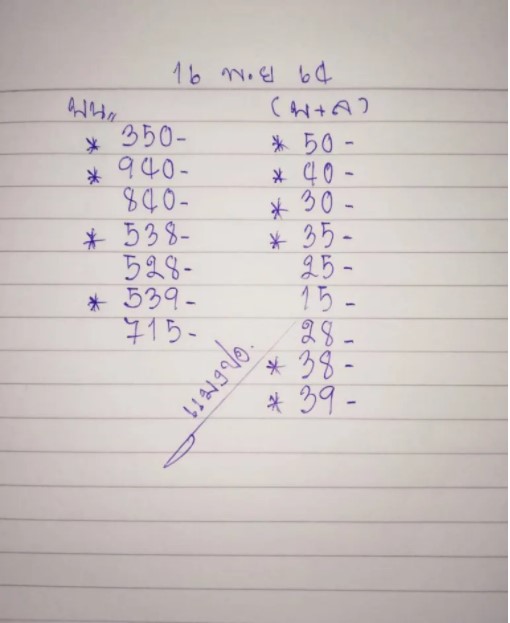 16 พ.ย 64
บน,,
* 350-
* 940-
840-
* 538-
528-
* 539-
715-
(บ+ล)
* 50-
* 40-
* 30-
* 35-
25-
15-
28-
* 38-
* 39-
แมงปอ.